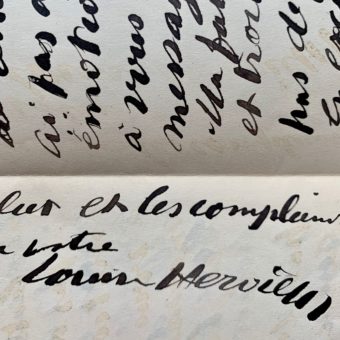 ai pas
émotio
à vous
messag
et trou
pas de
lut et les complim
votre
Louise Hervieu